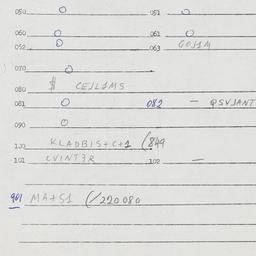 050 O 051 O
060 O 061 O
052 O 063 GOJ1M
070 O
080 $ CEJL1MS
081 O 082 — QSVJANT
090 O
100 KLADBIS+C+1 (849
101 CVINT3R 102 —
901 MA+S1 (/220080